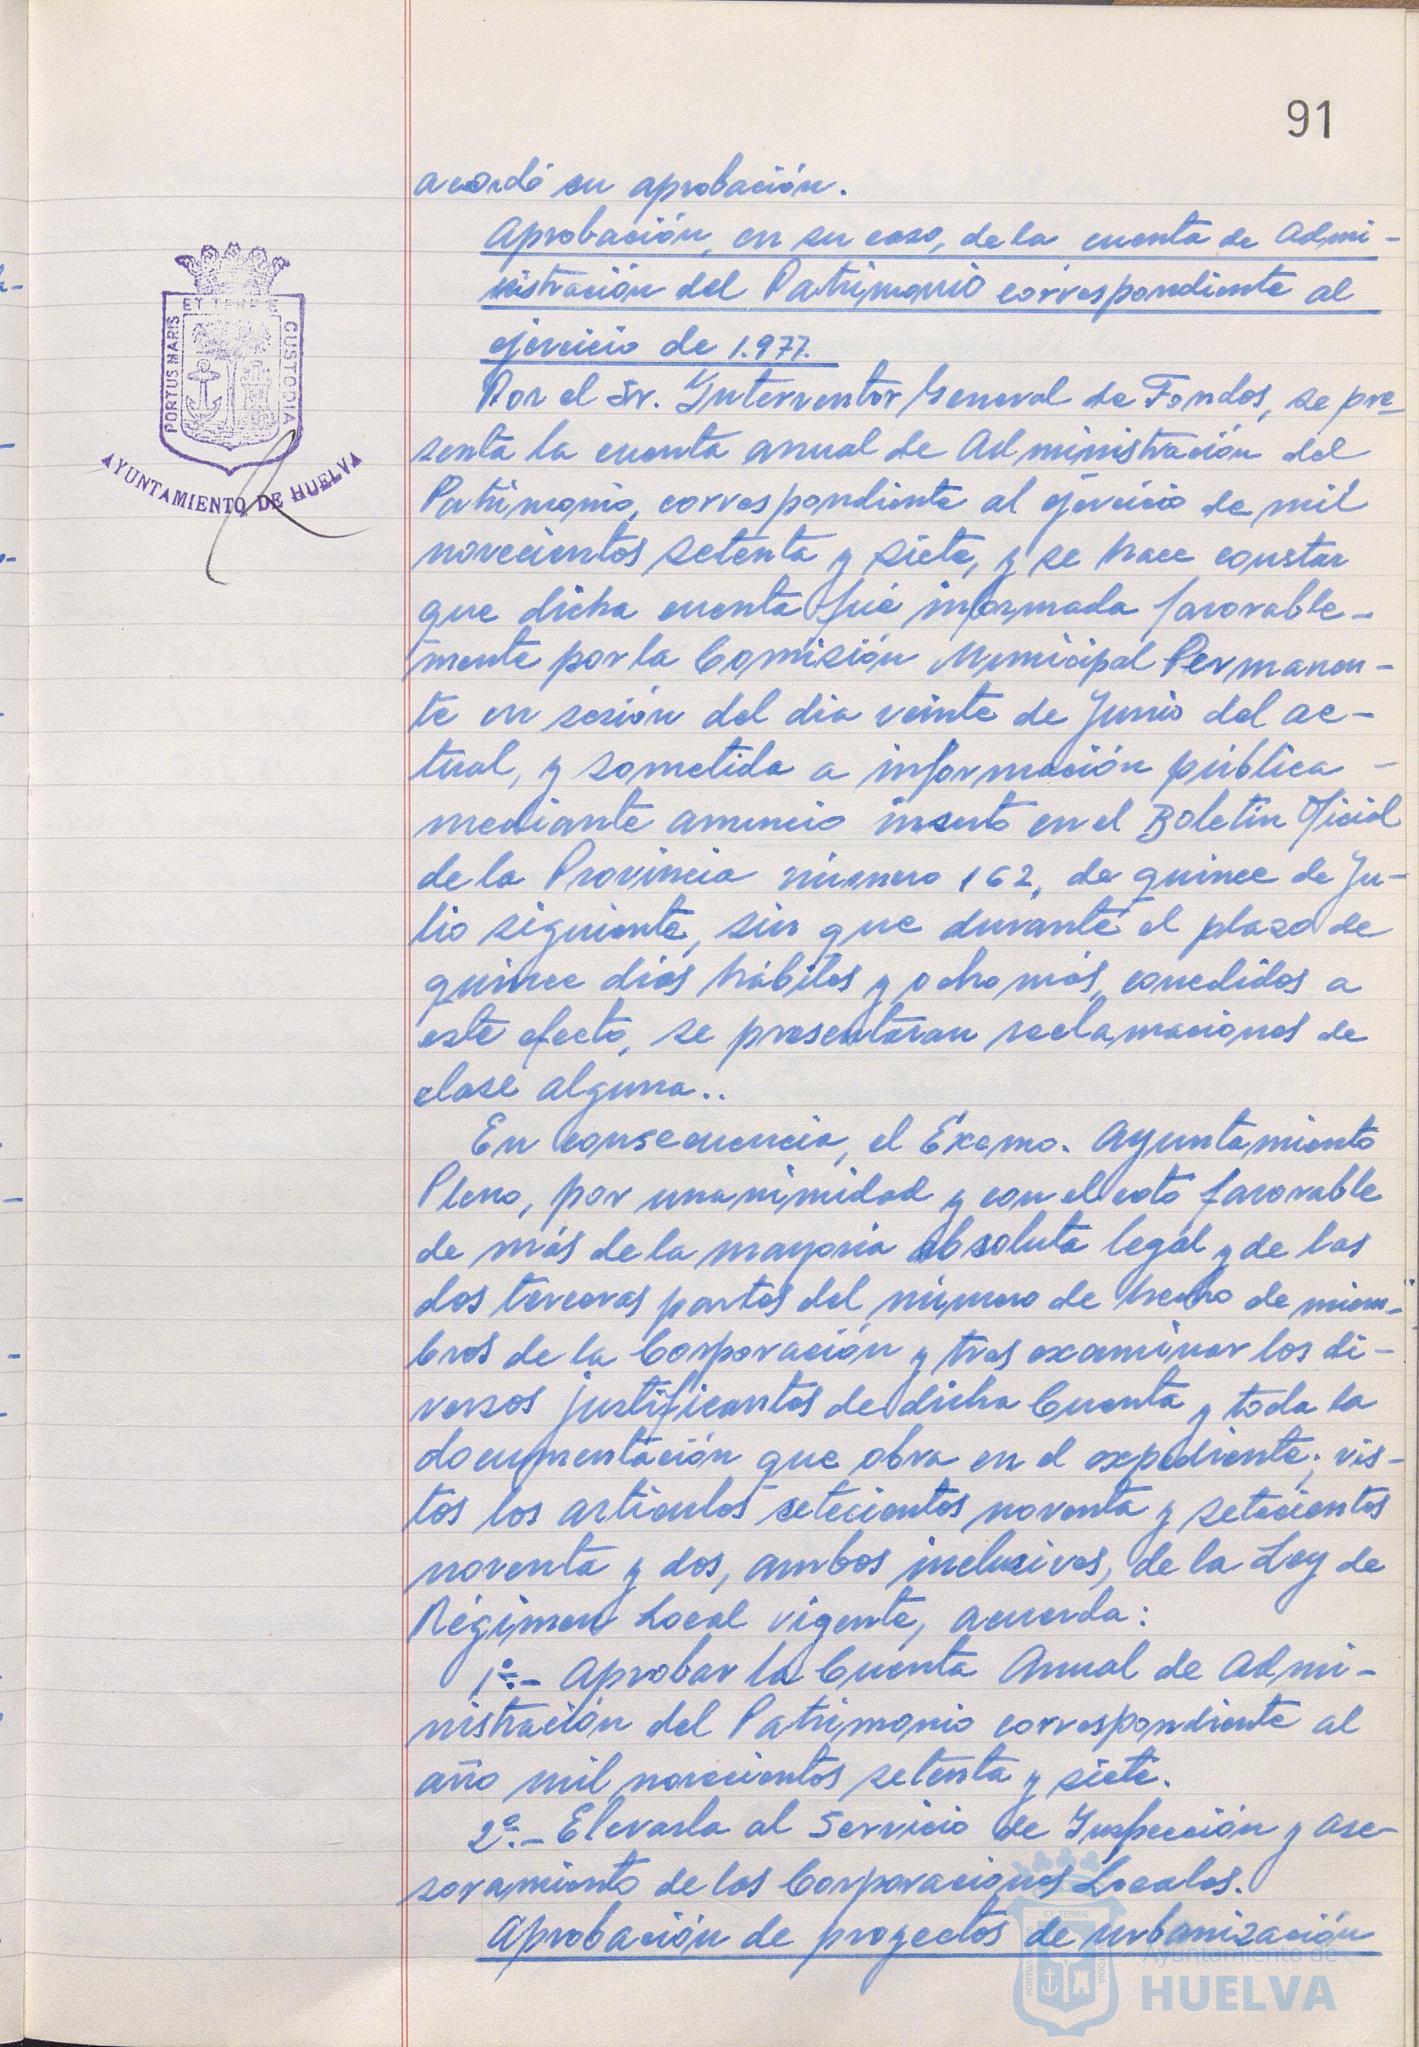 91
acordó su aprobación.
Aprobación, en su caso, de la cuenta de Admi-
nistración del Patrimonio correspondiente al
ejercicio de 1.977.
Por el Sr. Interventor General de Fondos, se pre-
senta la cuenta anual de Administración del
Patrimonio, correspondiente al ejercicio de mil
novecientos setenta y siete, y se hace constar
que dicha cuenta fué informada favorable-
mente por la Comisión Municipal Permanen-
te en sesión del dia veinte de Junio del ac-
tual, y sometida a información pública -
mediante anuncio inserto en el Boletín Oficial
de la Provincia número 162, de quince de Ju-
lio siguiente, sin que durante el plazo de
quince días hábiles y ocho más, concedidos a
este efecto, se presentaran reclamaciones de
clase alguna..
En consecuencia, el Excmo. Ayuntamiento
Pleno, por unanimidad y con el voto favorable
de más de la mayoria absoluta legal y de las
dos terceras partes del número de hecho de miem-
bros de la Corporación y tras examinar los di-
versos justificantes de dicha Cuenta y toda la
documentación que obra en el expediente; vis-
tos los artículos setecientos noventa y setecientos
noventa y dos, ambos inclusives, de la Ley de
Régimen Local vigente, acuerda:
1º.- Aprobar la Cuenta Anual de Admi-
nistración del Patrimonio correspondiente al
año mil novecientos setenta y siete.
2º.- Elevarla al Servicio de Inspección y ase-
soramiento de las Corporaciones Locales.
Aprobación de proyectos de urbanización
PORTUS MARIS
ET TERRÆ
CUSTODIA
AYUNTAMIENTO DE HUELVA
PORTUS
ET TERRÆ
CUSTODIA
Ayuntamiento de
HUELVA